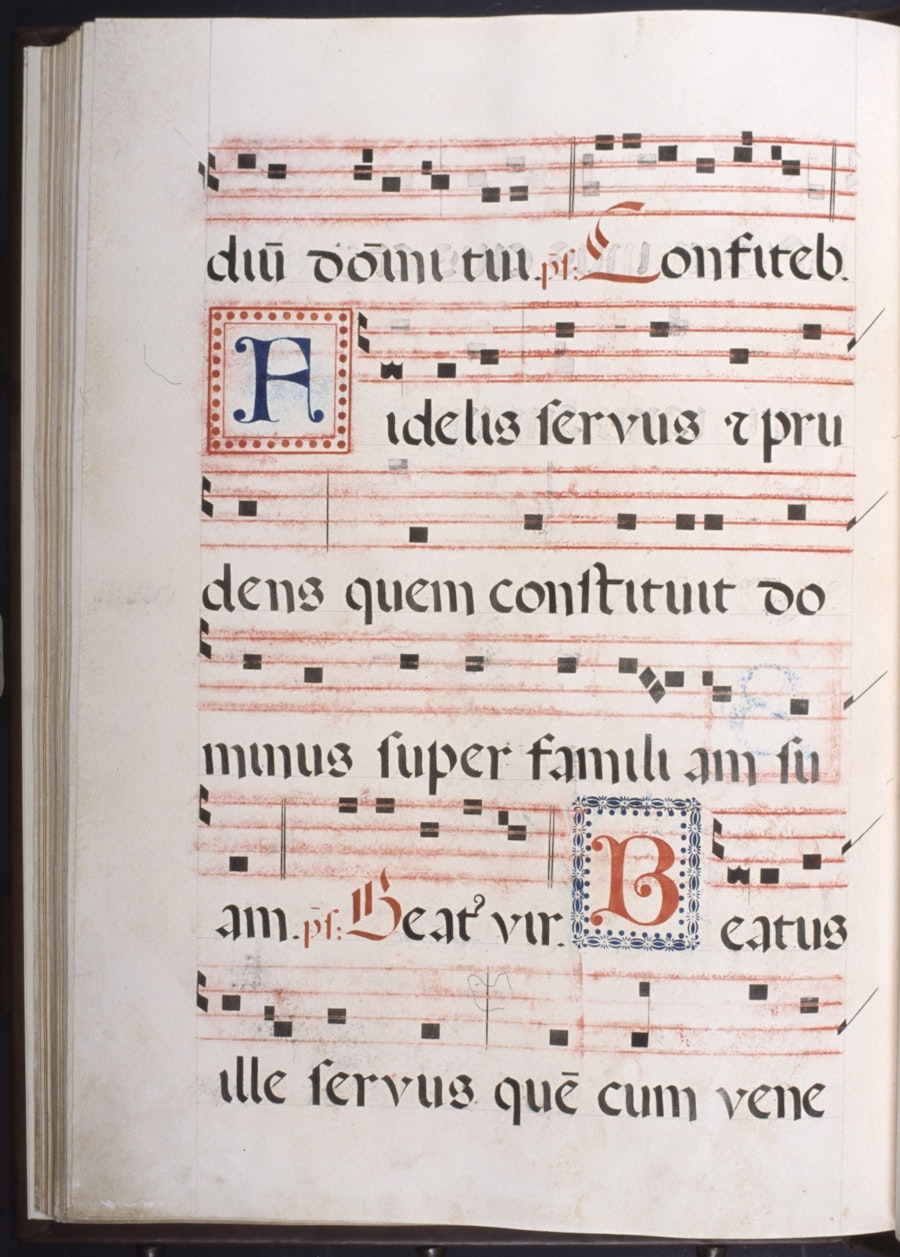 diū dōmi tui. p̄s: Confiteb.
Fidelis servus ⁊ pru
dens quem constituit do
minus super famili am su
am. p̄s: Beatꝰ vir. Beatus
ille servus quē cum vene